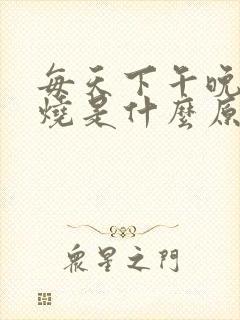 每天下午晚
燒是什麼原
眾星之門